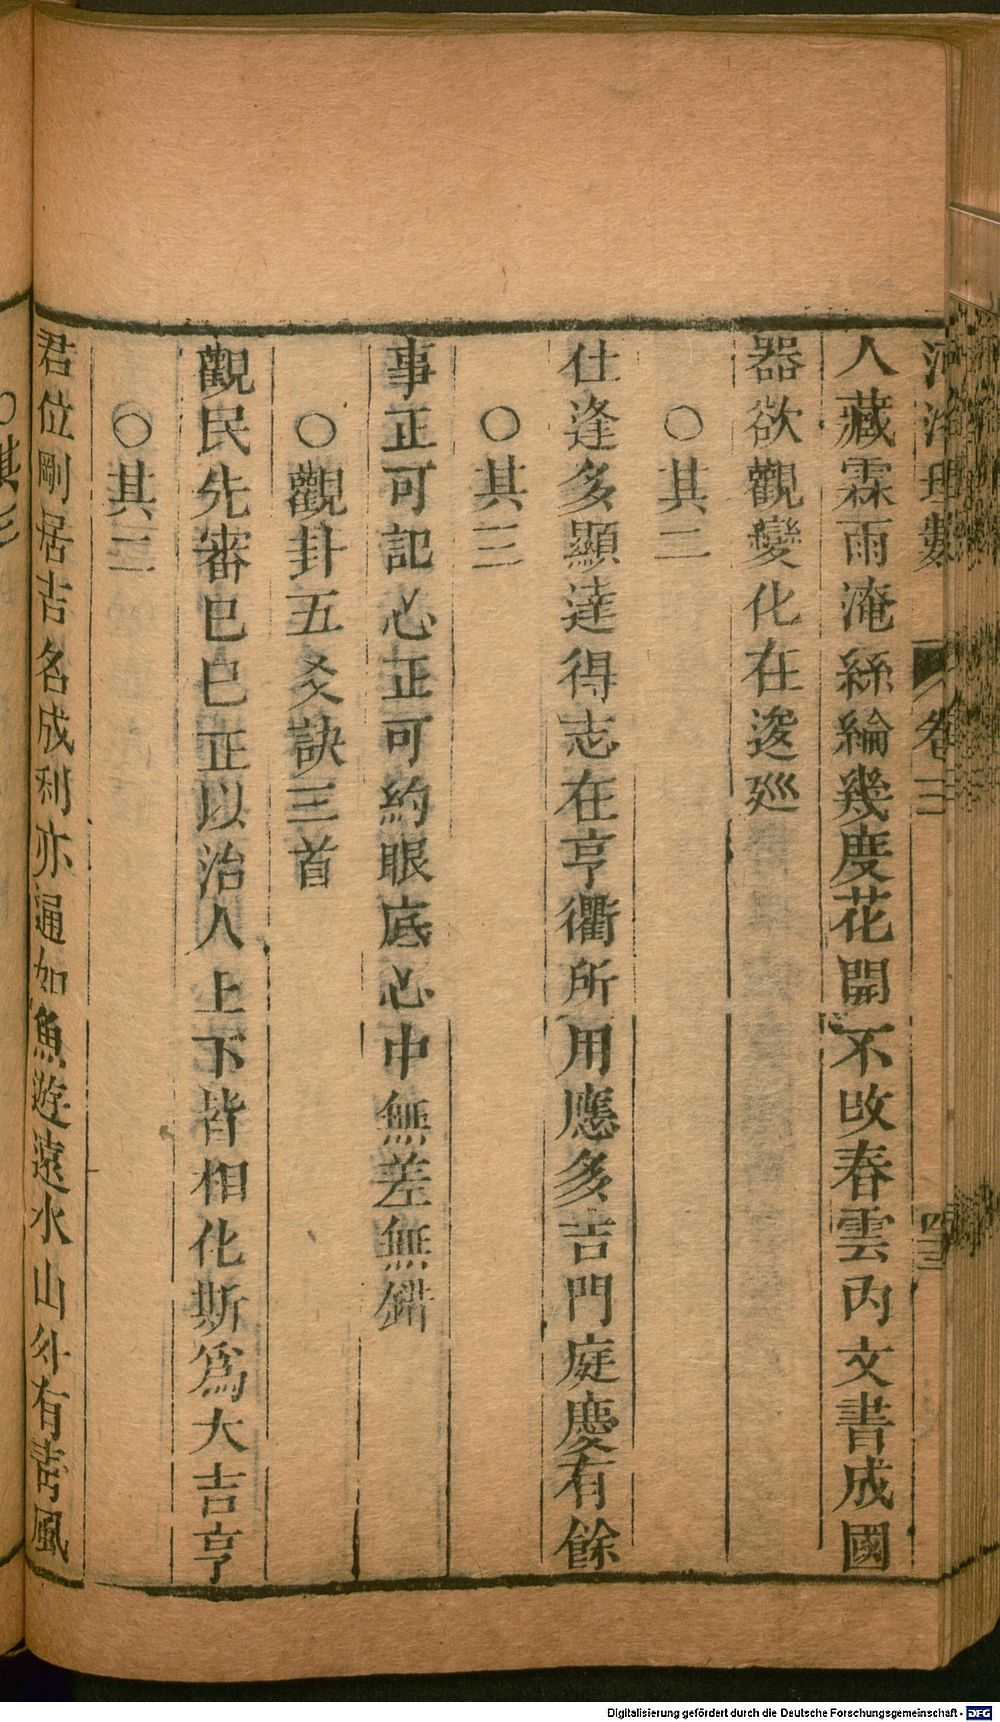 河洛理數 卷三 四三
人藏霖雨淹絲綸幾度花開不改春雲內文書成國
器欲觀變化在逡廵
○其二
仕逢多顯達得志在亨衢所用應多吉門庭慶有餘
○其三
事正可記心正可約眼底心中無差無錯
○觀卦五爻訣三首
觀民先審已已正以治人上下皆相化斯爲大吉亨
○其二
君位剛居吉名成利亦通如魚遊遠水山外有靑風
○其三
Digitalisierung gefördert durch die Deutsche Forschungsgemeinschaft - DFG